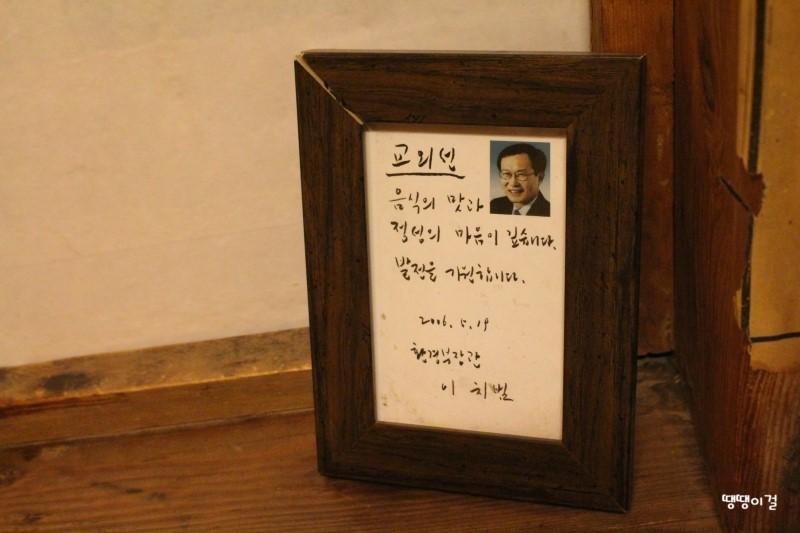 교외선
음식의 맛과
정성의 마음이 깊습니다.
발전을 기원합니다.
2006. 5. 19
환경부장관
이 치범
땡땡이걸